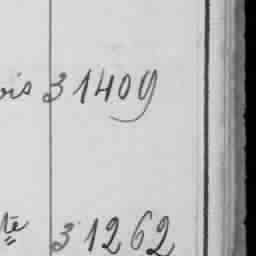 ois 31409
te 31262